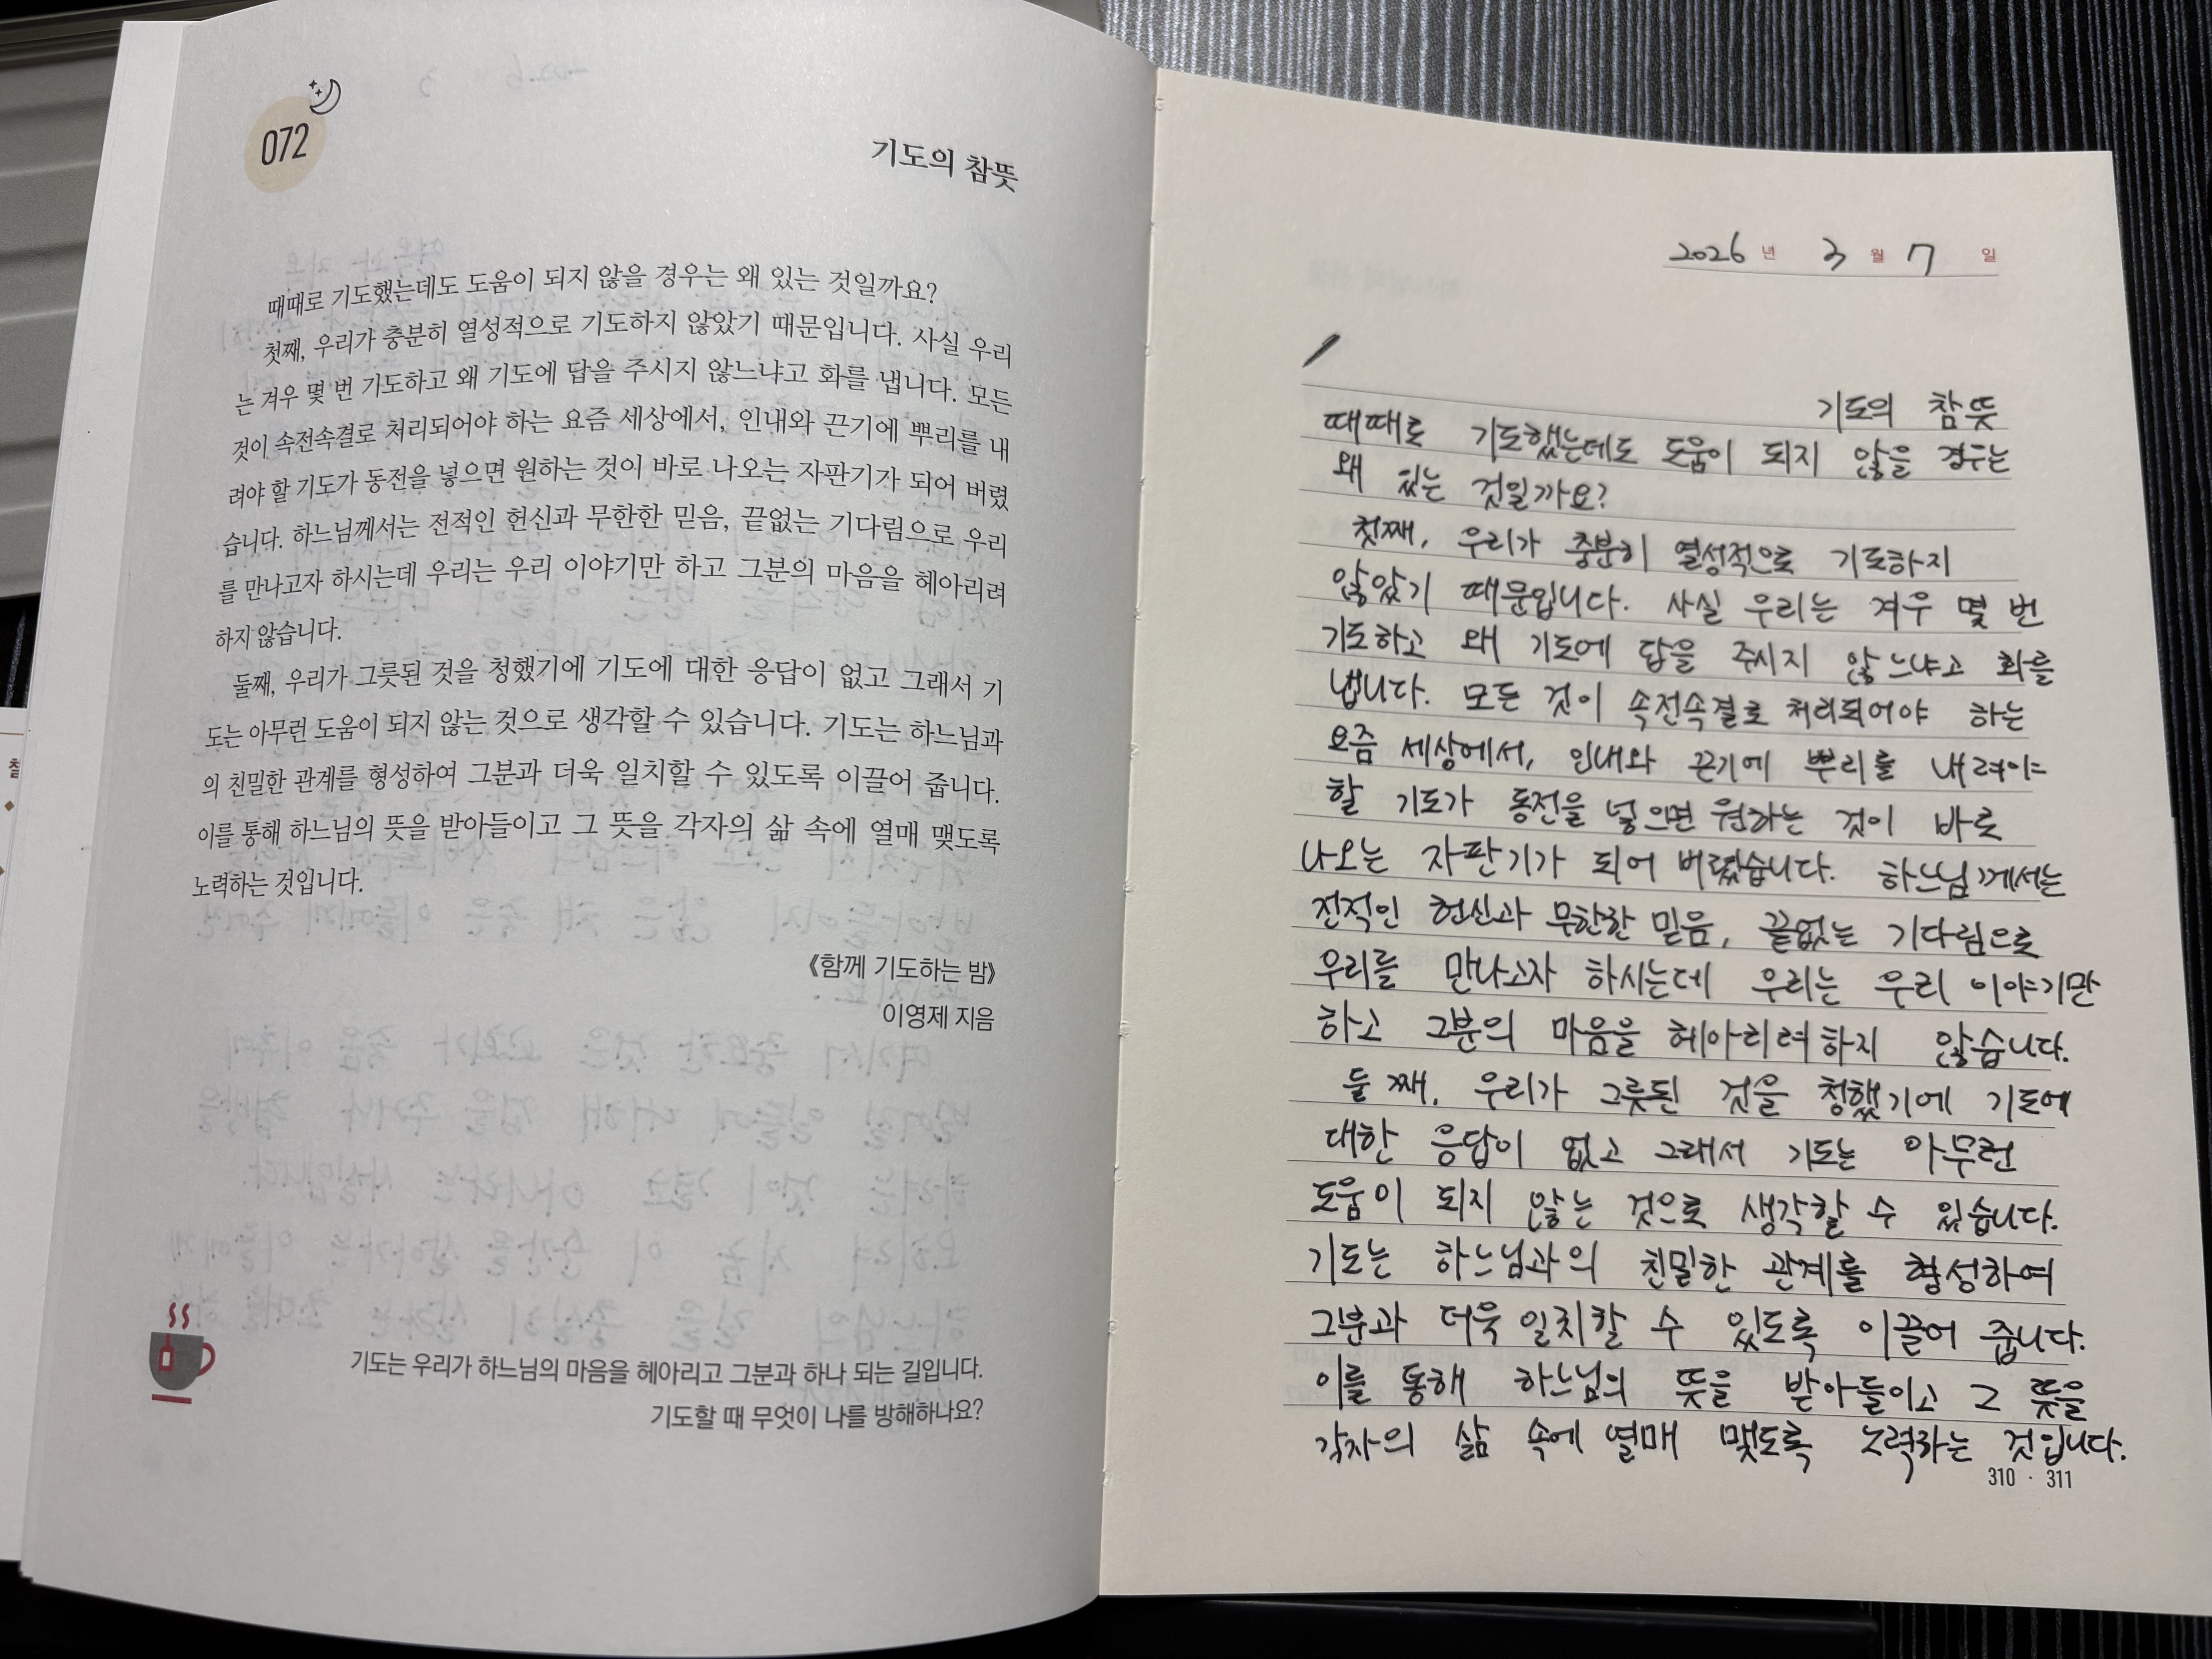 072
기도의 참뜻
때때로 기도했는데도 도움이 되지 않을 경우는 왜 있는 것일까요?
첫째, 우리가 충분히 열성적으로 기도하지 않았기 때문입니다. 사실 우리
는 겨우 몇 번 기도하고 왜 기도에 답을 주시지 않느냐고 화를 냅니다. 모든
것이 속전속결로 처리되어야 하는 요즘 세상에서, 인내와 끈기에 뿌리를 내
려야 할 기도가 동전을 넣으면 원하는 것이 바로 나오는 자판기가 되어 버렸
습니다. 하느님께서는 전적인 헌신과 무한한 믿음, 끝없는 기다림으로 우리
를 만나고자 하시는데 우리는 우리 이야기만 하고 그분의 마음을 헤아리려
하지 않습니다.
둘째, 우리가 그릇된 것을 청했기에 기도에 대한 응답이 없고 그래서 기
도는 아무런 도움이 되지 않는 것으로 생각할 수 있습니다. 기도는 하느님과
의 친밀한 관계를 형성하여 그분과 더욱 일치할 수 있도록 이끌어 줍니다.
이를 통해 하느님의 뜻을 받아들이고 그 뜻을 각자의 삶 속에 열매 맺도록
노력하는 것입니다.
《함께 기도하는 밤》
이영제 지음
기도는 우리가 하느님의 마음을 헤아리고 그분과 하나 되는 길입니다.
기도할 때 무엇이 나를 방해하나요?
2026 년 3 월 7 일
기도의 참뜻
때때로 기도했는데도 도움이 되지 않을 경우는
왜 있는 것일까요?
첫째, 우리가 충분히 열성적으로 기도하지
않았기 때문입니다. 사실 우리는 겨우 몇 번
기도하고 왜 기도에 답을 주시지 않느냐고 화를
냅니다. 모든 것이 속전속결로 처리되어야 하는
요즘 세상에서, 인내와 끈기에 뿌리를 내려야
할 기도가 동전을 넣으면 원하는 것이 바로
나오는 자판기가 되어 버렸습니다. 하느님께서는
전적인 헌신과 무한한 믿음, 끝없는 기다림으로
우리를 만나고자 하시는데 우리는 우리 이야기만
하고 그분의 마음을 헤아리려 하지 않습니다.
둘째, 우리가 그릇된 것을 청했기에 기도에
대한 응답이 없고 그래서 기도는 아무런
도움이 되지 않는 것으로 생각할 수 있습니다.
기도는 하느님과의 친밀한 관계를 형성하여
그분과 더욱 일치할 수 있도록 이끌어 줍니다.
이를 통해 하느님의 뜻을 받아들이고 그 뜻을
각자의 삶 속에 열매 맺도록 노력하는 것입니다.
310 · 311